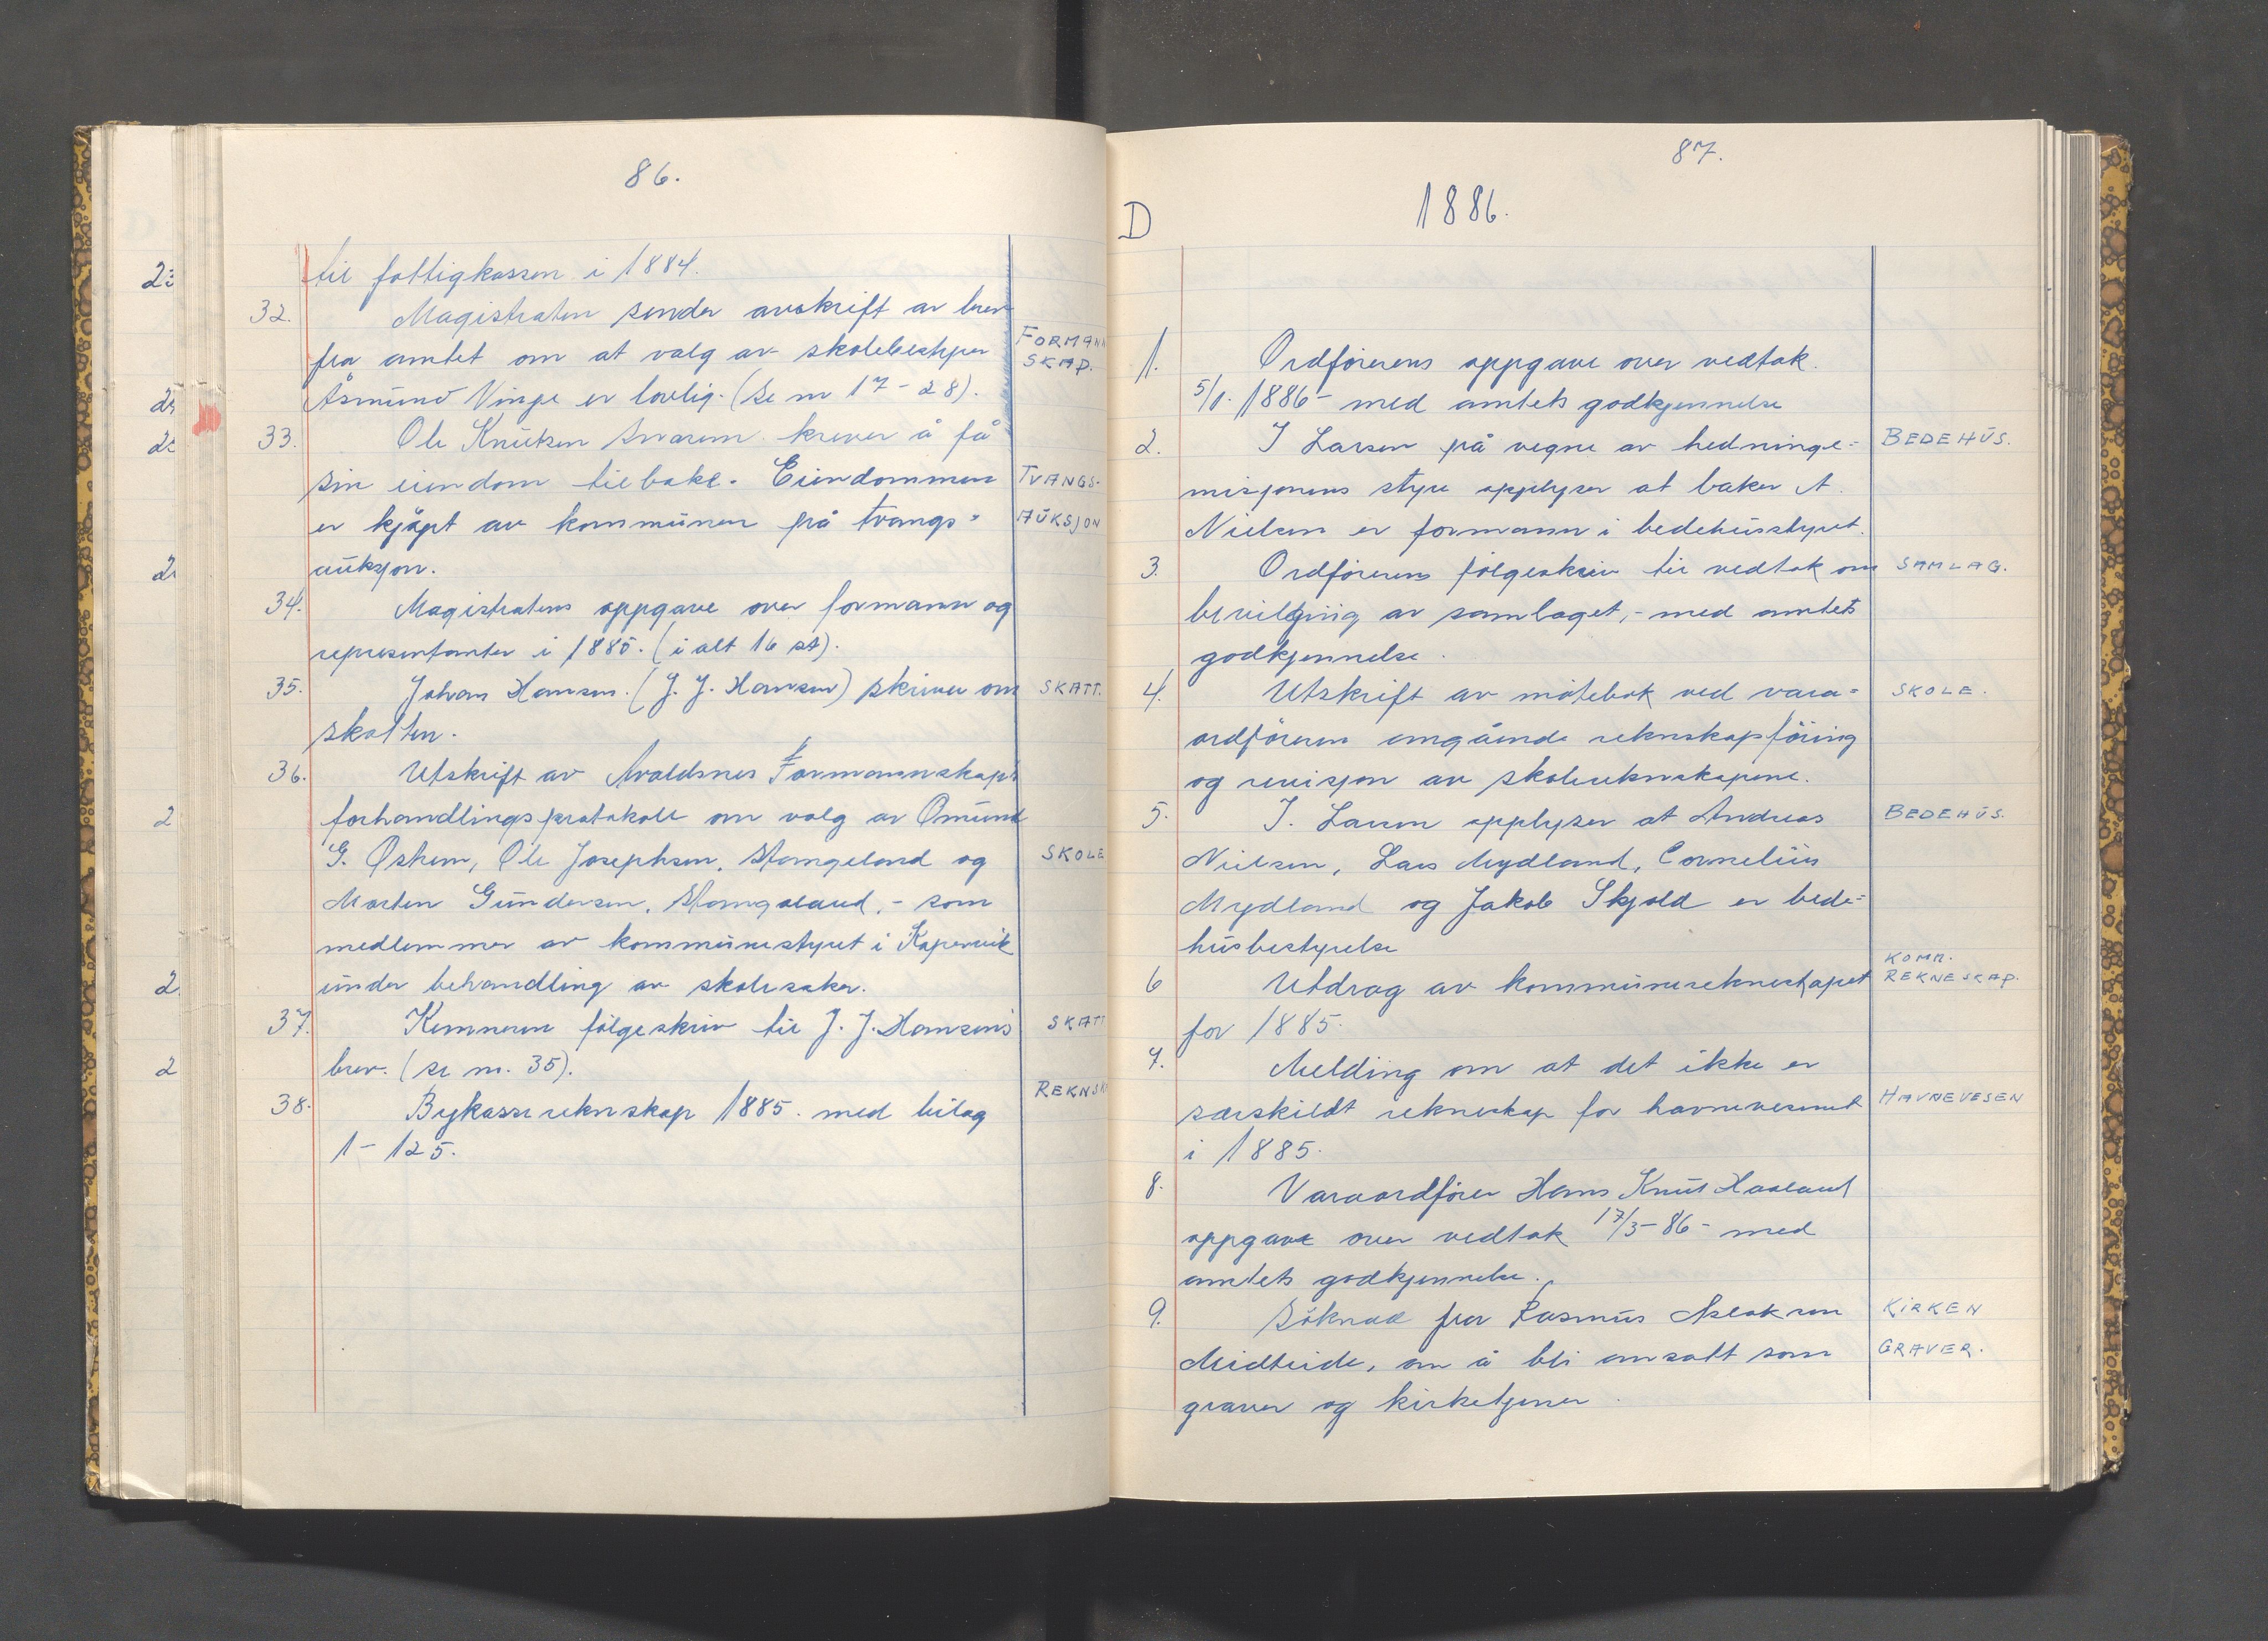 86.
til fattigkassen i 1884.
32. Magistraten sender avskrift av brev
fra amtet om at valg av skolebestyrer
FORMANN
SKAP.
Åsmund Vinje er lovlig. (Se nr 17-28).
33. Ole Knutsen krever å få
sin eiendom tilbake. Eiendommen
TVANGS-
er kjöpt av kommunen på tvangs=
AUKSJON
auksjon.
34. Magistratens oppgave over formann og
representanter i 1885. (i alt 16 st).
35. Johan Hansen. (J. J. Hansen) skriver om
SKATT.
skatten.
36. Utskrift av Avaldsnes Formannskaps
forhandlingsprotokoll om valg av Omund
G. Östrem, Ole Josephsen, Stangeland og
SKOLE
Morten Gundersen, Stangeland, - som
medlemmer av kommunestyret i Kopervik
under behandling av skolesaker.
37. Kemneren følgeskriv til J. J. Hansens
SKATT
brev. (se nr. 35).
38. Bykasserekneskap 1885. med bilag
REKNSK
1- 125.
87.
D
1886.
1. Ordförerens oppgave over vedtak
5/1. 1886 - med amtets godkjennelse
2. I Larsen på vegne av hedninge=
BEDEHUS.
misjonens styre opplyser at baker A.
Nielsen er formann i bedehusstyret.
3. Ordförerens fölgeskriv til vedtak om
SAMLAG.
bevilgning av samlaget, - med amtets
godkjennelse.
4. Utskrift av mötebok ved vara=
SKOLE.
ordföreren angående rekneskapsföring
og revisjon av skolerekneskapene.
5. I. Larsen opplyser at Andreas
BEDEHUS.
Nielsen, Lars Mydland, Cornelius
Mydland og Jakob Skjold er bede=
husbestyrelse
6 Utdrag av kommunerekneskapet
KOMM.
REKNESKAP.
for 1885.
7. Melding om at det ikke er
særskildt rekneskap for havnevesenet
HAVNEVESEN
i 1885.
8. Varaordförer Hans Knut Haaland
oppgave over vedtak 17/3-86 - med
amtets godkjennelse.
9. Söknad fra Rasmus Aslaksen
KIRKEN
Midteide, om å bli ansatt som
GRAVER.
graver og kirketjener.